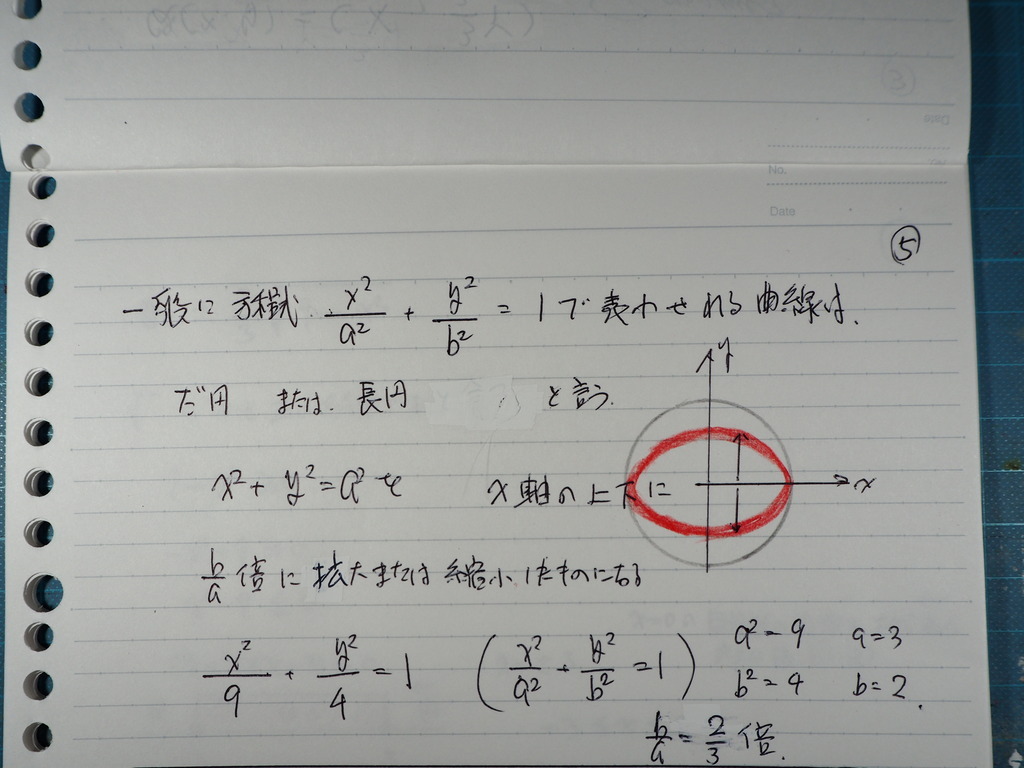 No.
Date
⑤
一般に方程式 x²/a² + y²/b² = 1で表わせれる曲線は、
だ円 または、長円 と言う。
y
x
x² + y² = a² を x軸の上下に
b/a 倍に拡大または縮小したものになる
x²/9 + y²/4 = 1 (x²/a² + y²/b² = 1) a² = 9 a = 3
b² = 4 b = 2.
b/a = 2/3 倍.